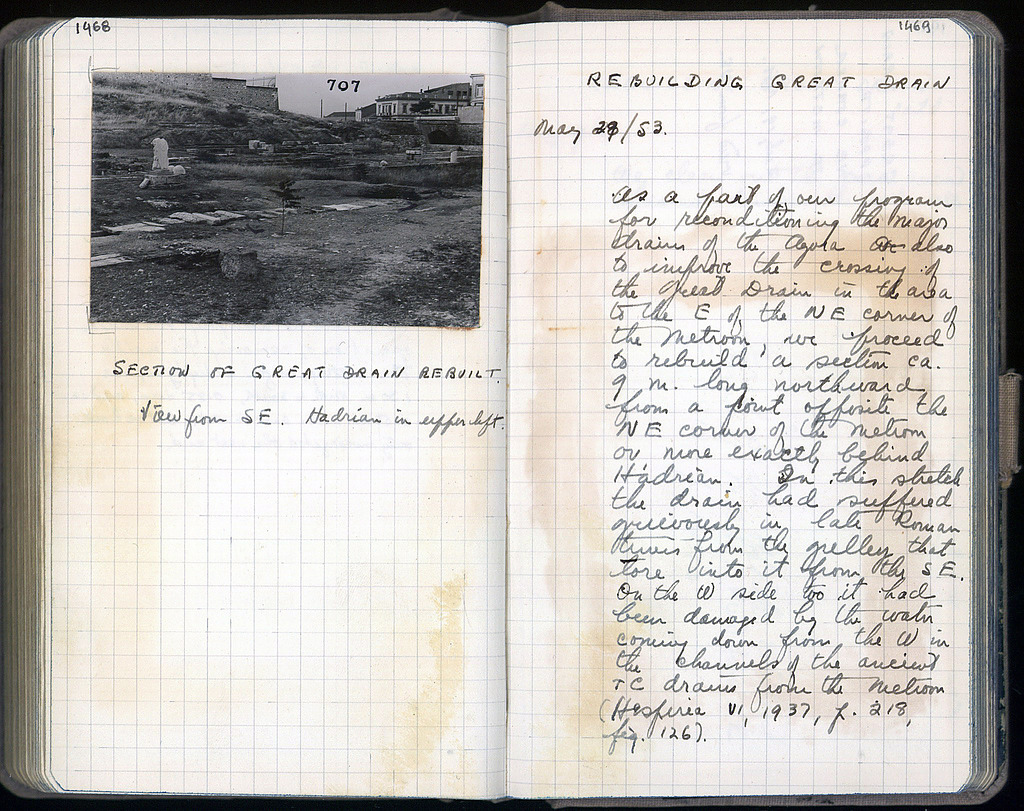 1468
707
SECTION OF GREAT DRAIN REBUILT.
View from SE. Hadrian in upper left.
1469
REBUILDING GREAT DRAIN
May /53.
As a part of our program
for reconditioning the major
drains of the Agora also
to improve the crossing of
the Great Drain in the area
to the E of the NE corner of
the Metroon, we proceed
to rebuild a section ca.
9 m. long northward
from a point opposite the
NE corner of the Metroon
or more exactly behind
Hadrian. In this stretch
the drain had suffered
grievously in late Roman
times from the gulley that
tore into it from the SE.
On the W side too it had
been damaged by the water
coming down from the W in
the channels of the ancient
TC drains from the Metroon
(Hesperia VI, 1937, p. 218,
fig. 126).